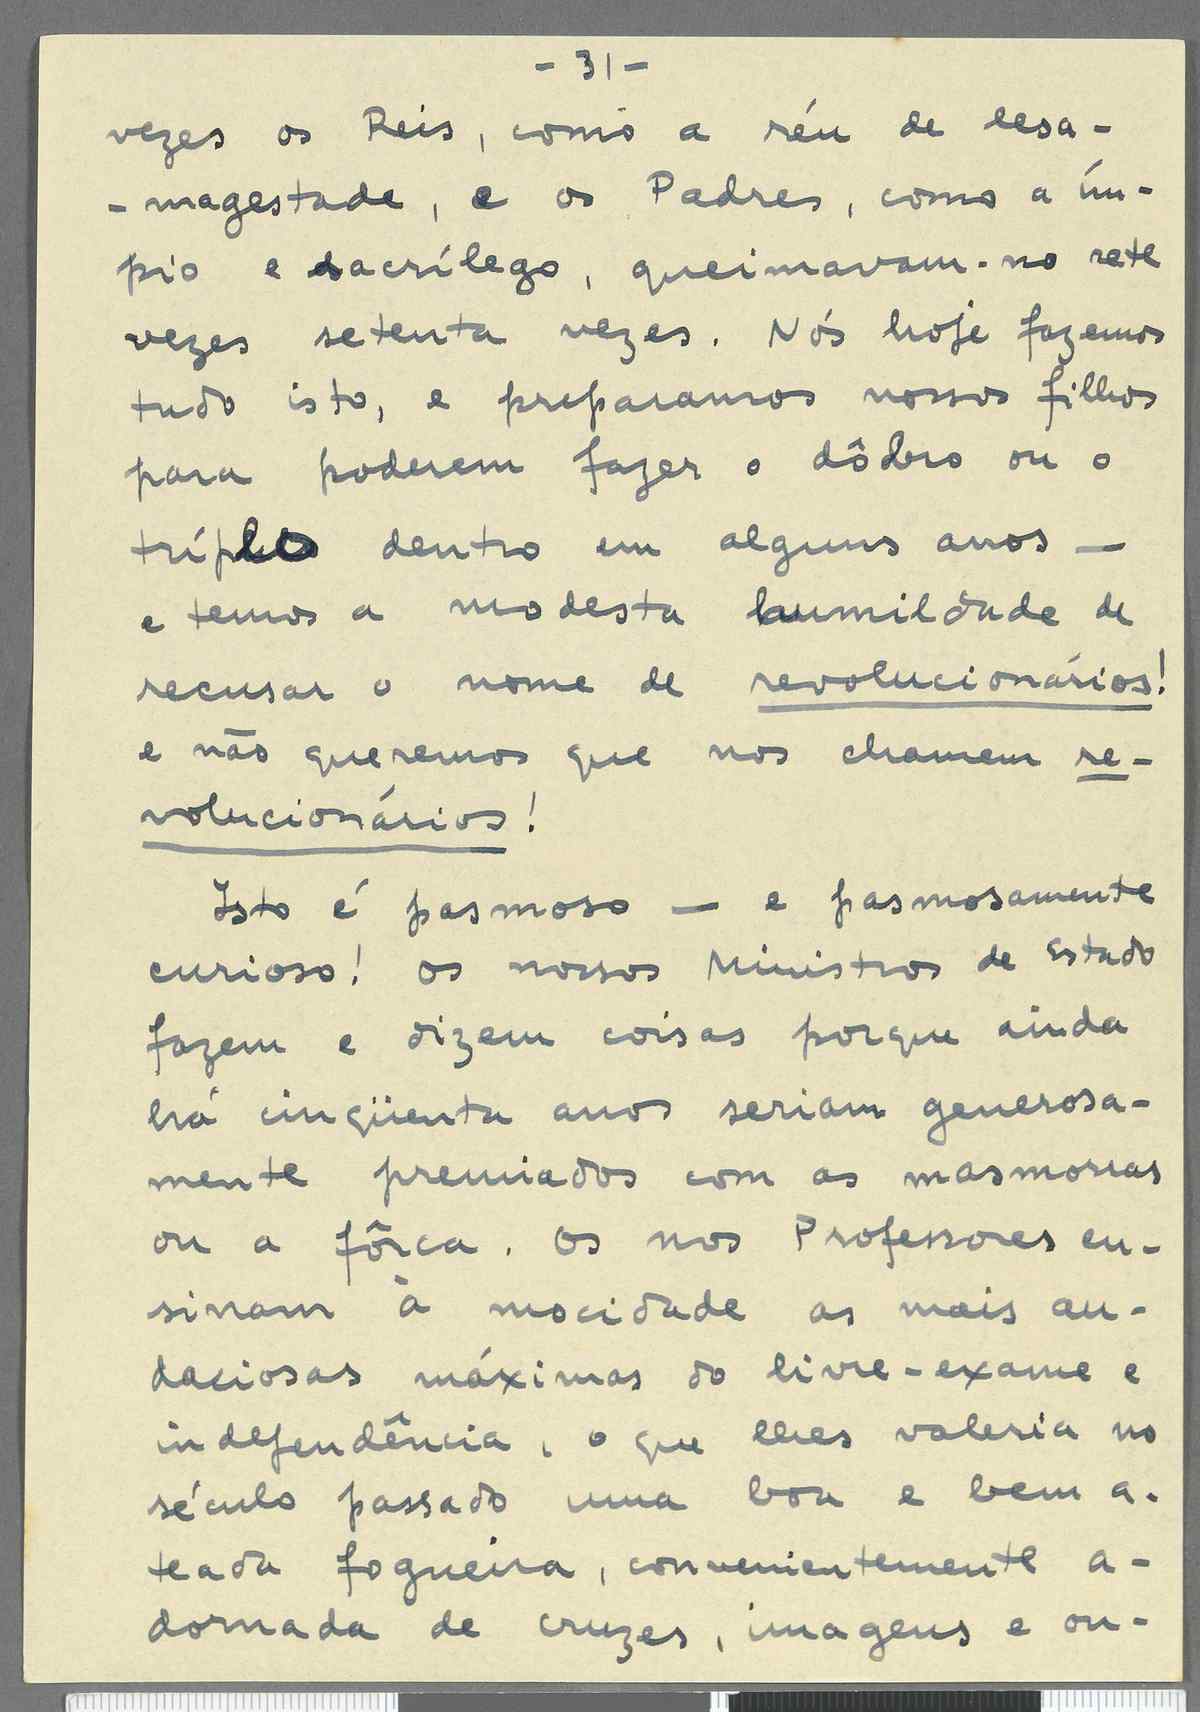 - 31 -
vezes os Reis, como a réu de lesa-
-magestade, e os Padres, como a ím-
pio e sacrílego, queimavam-no sete
vezes setenta vezes. Nós hoje fazemos
tudo isto, e preparamos nossos filhos
para poderem fazer o dôbro ou o
tríplo dentro em alguns anos —
e temos a modesta humildade de
recusar o nome de revolucionários!
e não queremos que nos chamem re-
volucionários!
Isto é pasmoso — e pasmosamente
curioso! Os nossos Ministros de Estado
fazem e dizem coisas porque ainda
há cinqüenta anos seriam generosa-
mente premiados com as masmorras
ou a fôrca. Os nos Professores en-
sinam à mocidade as mais au-
daciosas máximas do livre-exame e
independência, o que lhes valeria no
século passado uma boa e bem a-
teada fogueira, convenientemente a-
dornada de cruzes, imagens e ou-